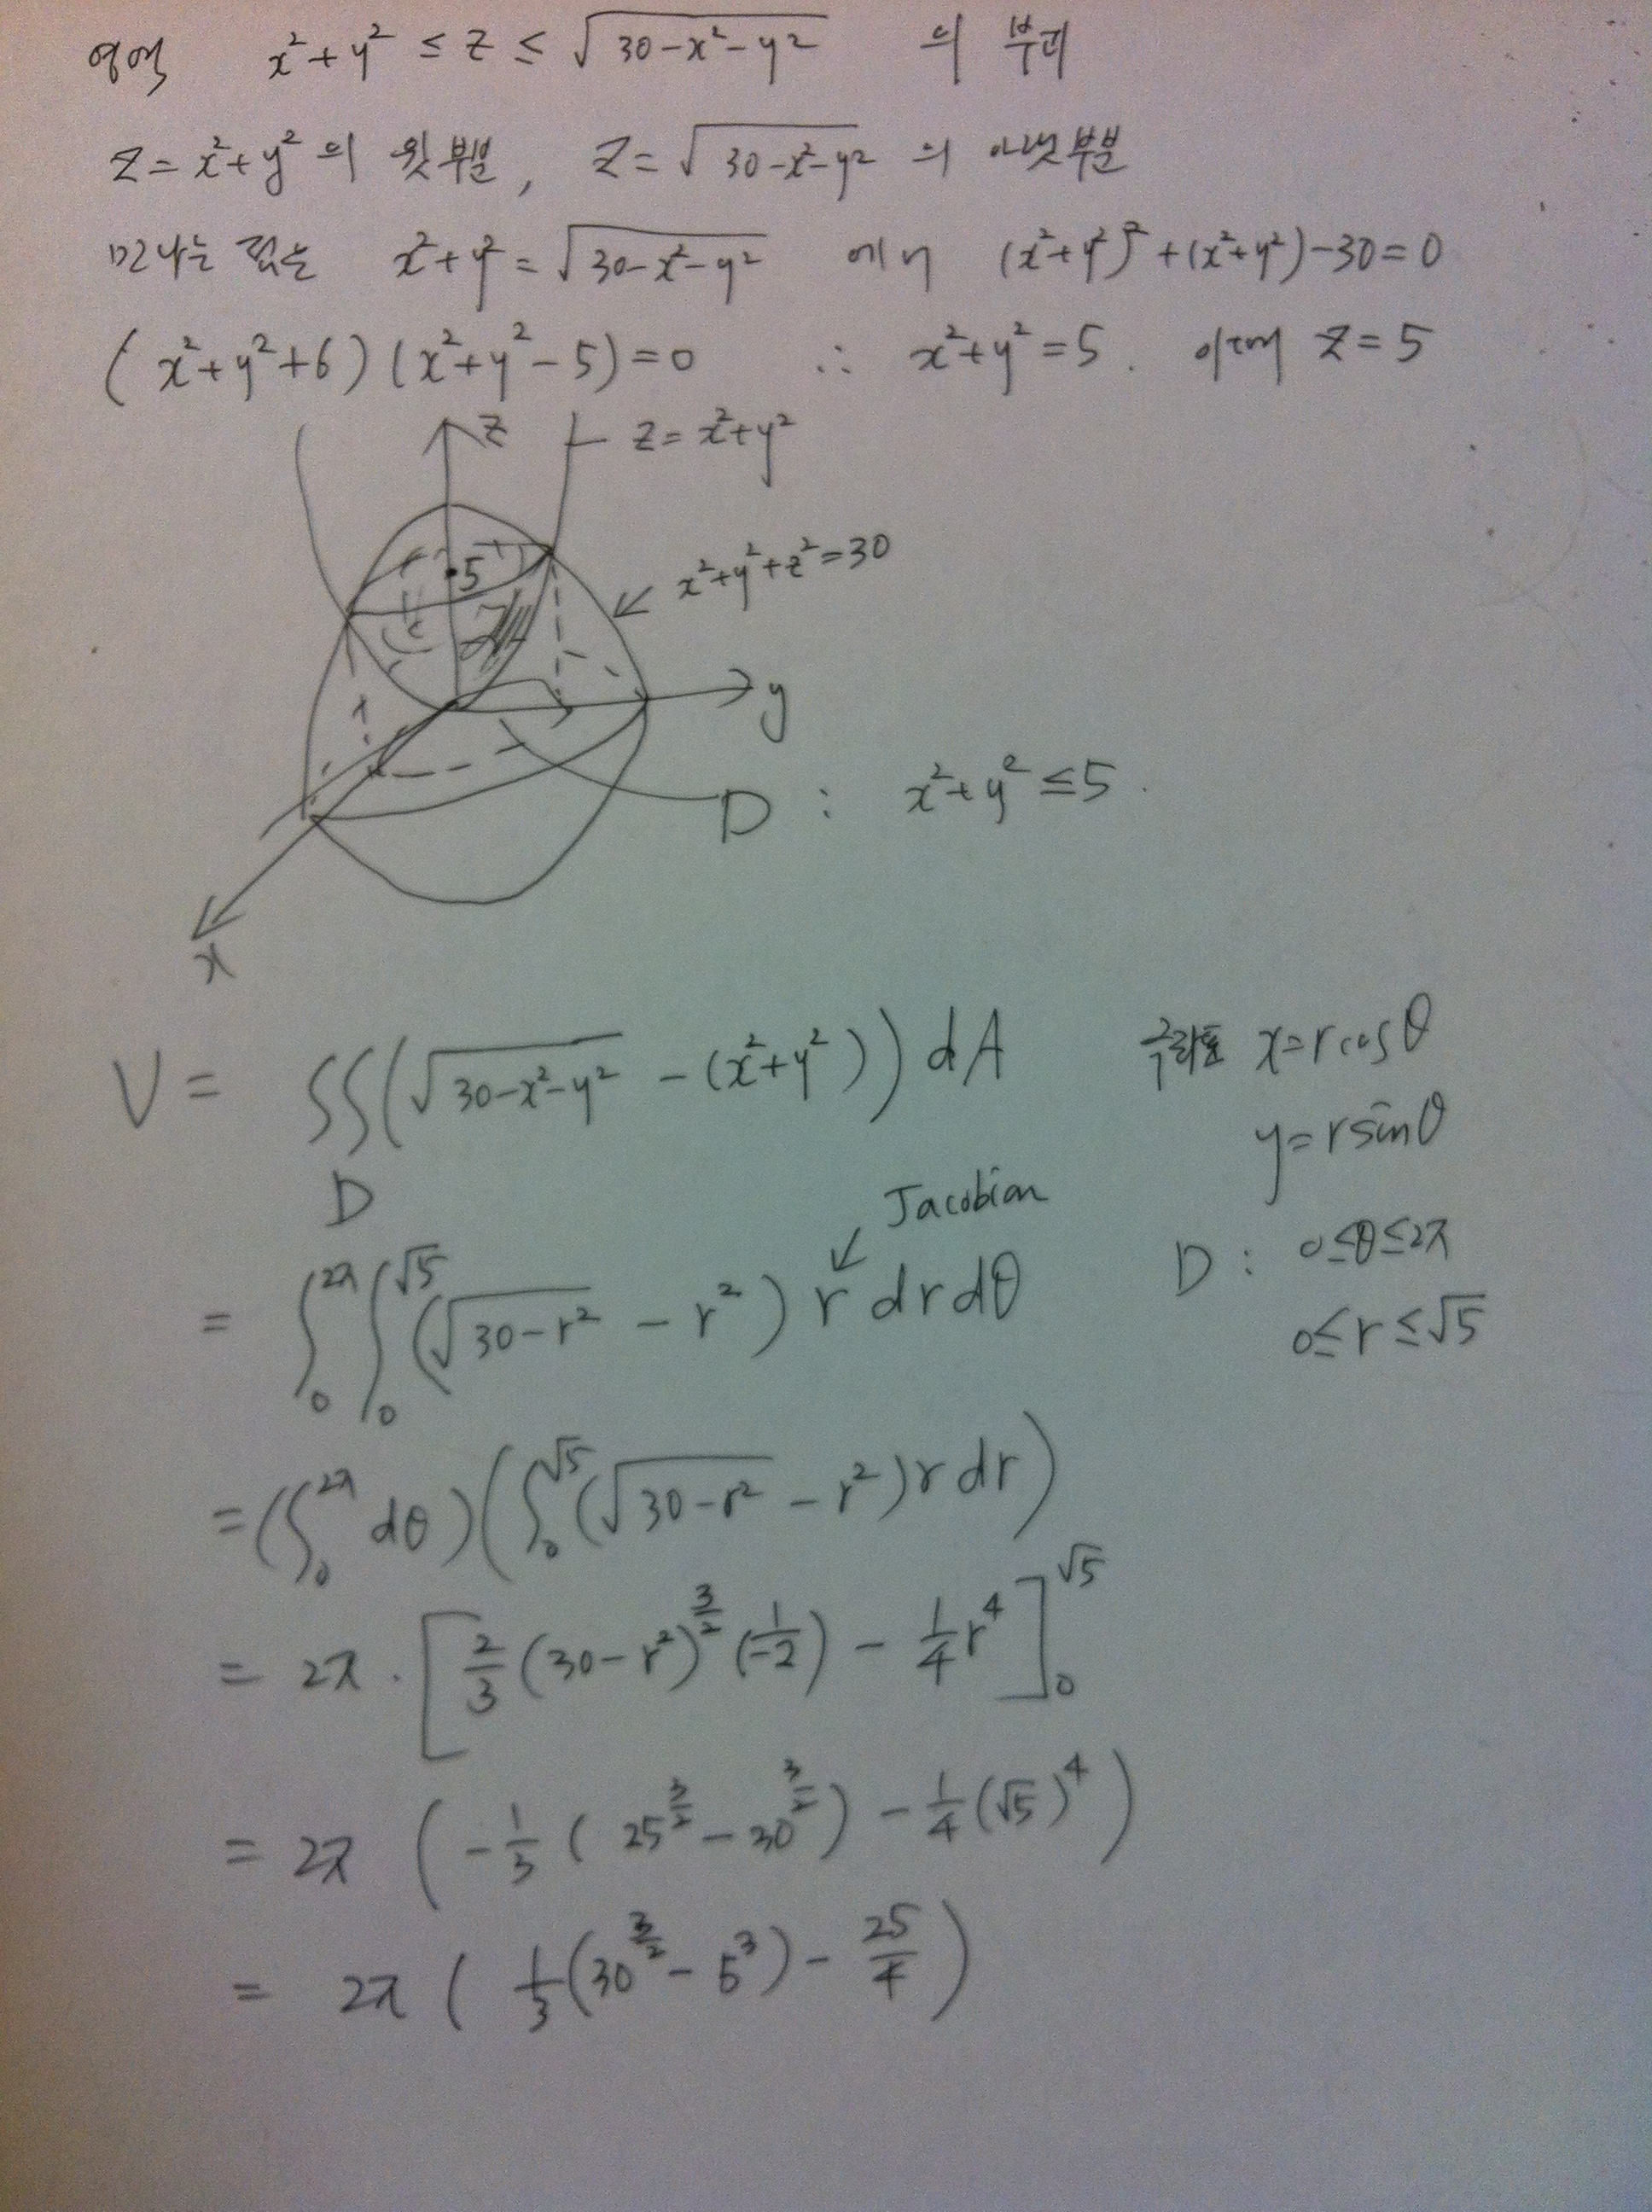 영역 x²+y² ≤ z ≤ √(30-x²-y²) 의 부피
z=x²+y² 의 윗부분, z=√(30-x²-y²) 의 아랫부분
만나는 점은 x²+y²=√(30-x²-y²) 에서 (x²+y²)²+(x²+y²)-30=0
(x²+y²+6)(x²+y²-5)=0 ∴ x²+y²=5. 이때 z=5
z
z=x²+y²
5
x²+y²+z²=30
y
D : x²+y² ≤5.
x
V = ∬_D (√(30-x²-y²) - (x²+y²)) dA
극좌표 x=rcosθ
y=rsinθ
Jacobian
= ∫_0^{2π} ∫_0^{√5} (√(30-r²) - r²) r dr dθ
D : 0≤θ≤2π
0≤r≤√5
= (∫_0^{2π} dθ)(∫_0^{√5} (√(30-r²) - r²) r dr)
= 2π · [ 2/3 (30-r²)^{3/2} (1/-2) - 1/4 r⁴ ]_0^{√5}
= 2π ( -1/3 ( 25^{3/2} - 30^{3/2} ) - 1/4 (√5)⁴ )
= 2π ( 1/3 (30^{3/2} - 5³) - 25/4 )